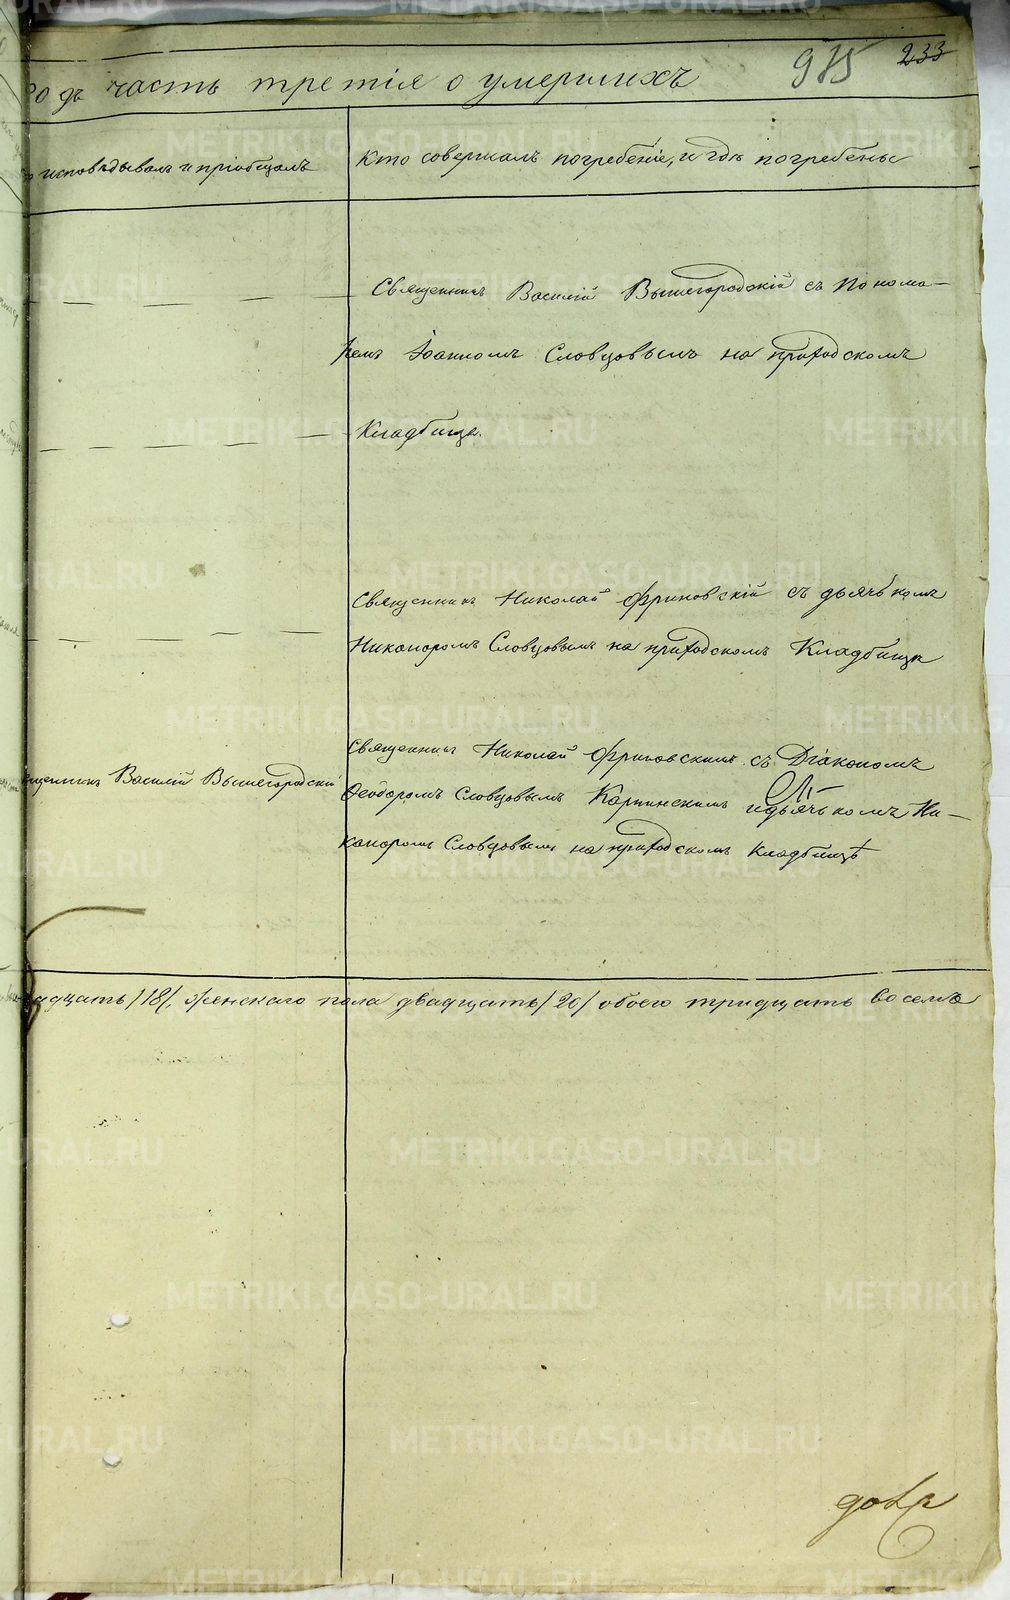 975 233
годъ часть третія о умершихъ
исповѣдывалъ и пріобщалъ
Кто совершалъ погребеніе, и гдѣ погребены
Священникъ Василій Вышегородскій съ Понома-
ремъ Іоанномъ Словцовымъ на приходскомъ
Кладбище.
Священникъ Николай Фриновскій съ дьячькомъ
Никаноромъ Словцовымъ на приходскомъ Кладбище
щенникъ Василій Вышегородскій
Священникъ Николай Фриновскимъ съ Діакономъ
Ѳеодоромъ Словцовымъ Карпинскимъ и дьячькомъ Ни-
каноромъ Словцовымъ на приходскомъ Кладбищѣ
адцать /18/, женскаго пола двадцать /20/ обоего тридцать восемь
METRIKI.GASO-URAL.RU